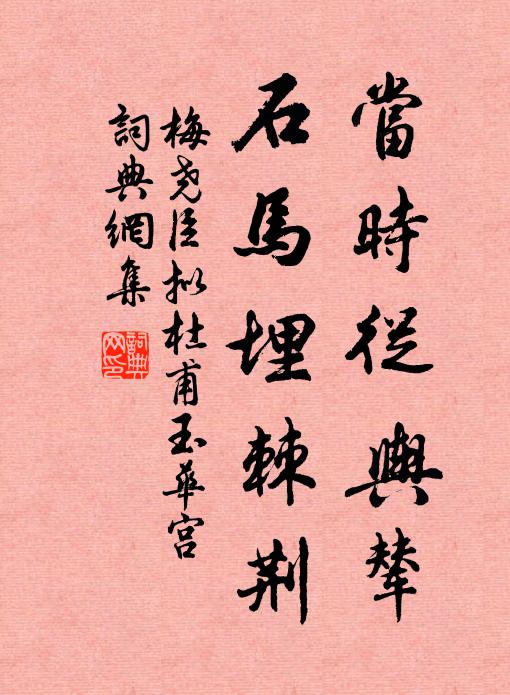 當時從輿輦
石馬埋棘荆
梅尧臣拟杜甫玉華宫
詞典網集
詞典
网印